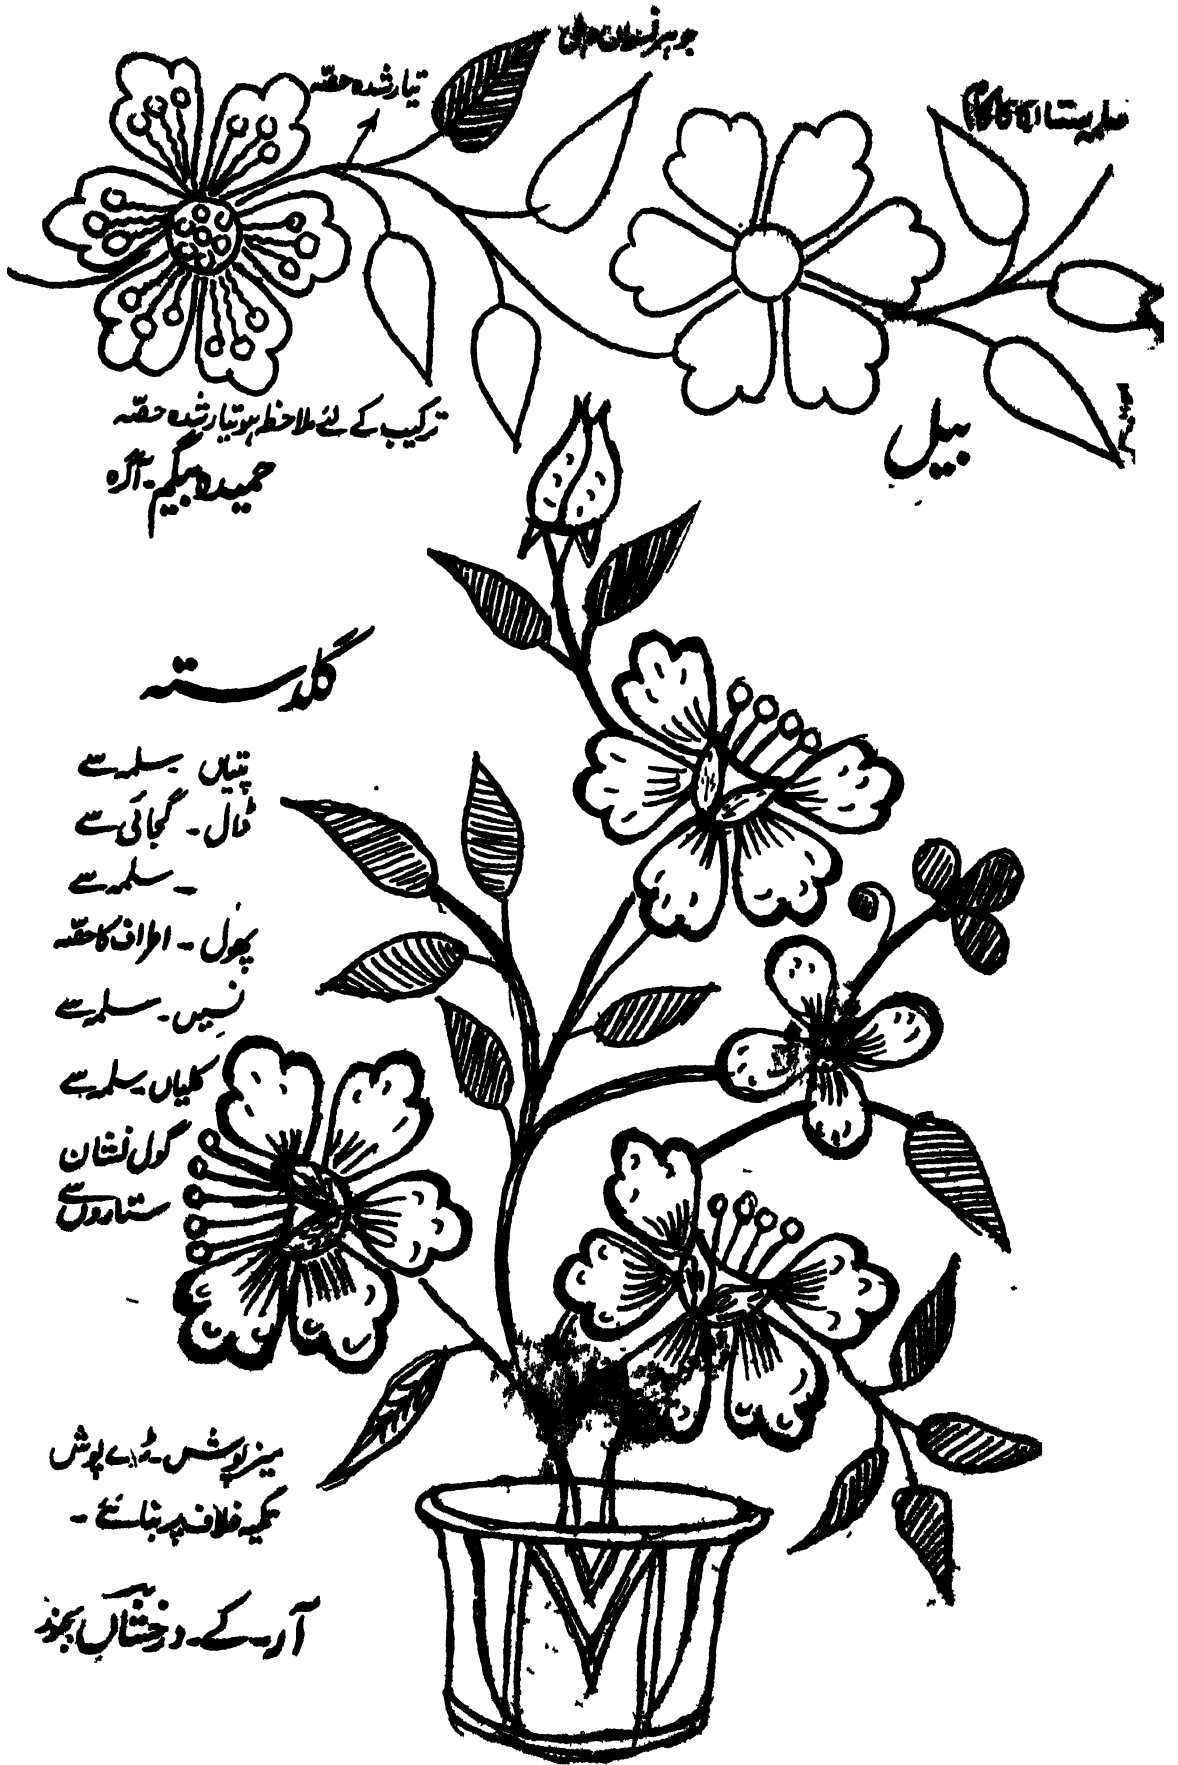 تیار شدہ حصّہ
سلمہ ستارا کا کام
ترکیب کے لئے ملاحظہ ہو تیار شدہ حصّہ
حمیدہ بیگم - آگرہ
بیل
گلدستہ
پتیاں - سلمہ سے
ڈال - گجائی سے
- سلمہ سے
پھول - اطراف کا حصّہ
نسیں - سلمہ سے
کلیاں - سلمہ سے
گول نشان
ستاروں سے
میز پوش - ٹرے پوش
تکیہ غلاف پر بنائے -
آر - کے - درخشاں